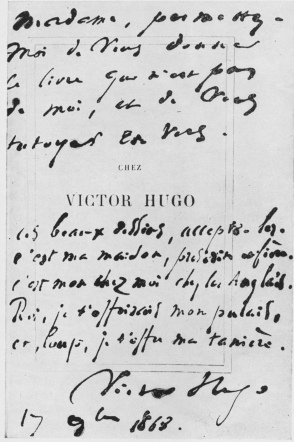 Madame, permettez-
moi de vous donner
ce livre qui n'est pas
de moi, et de vous
tutoyer en vers.
CHEZ
VICTOR HUGO
ces beaux dessins, acceptez-les.
c'est ma maison,
c'est mon chez moi chez les Anglais.
Roi, je t'offrirais mon palais,
et, loup, je t'offre ma tanière.
Victor Hugo
17 9bre 1868.